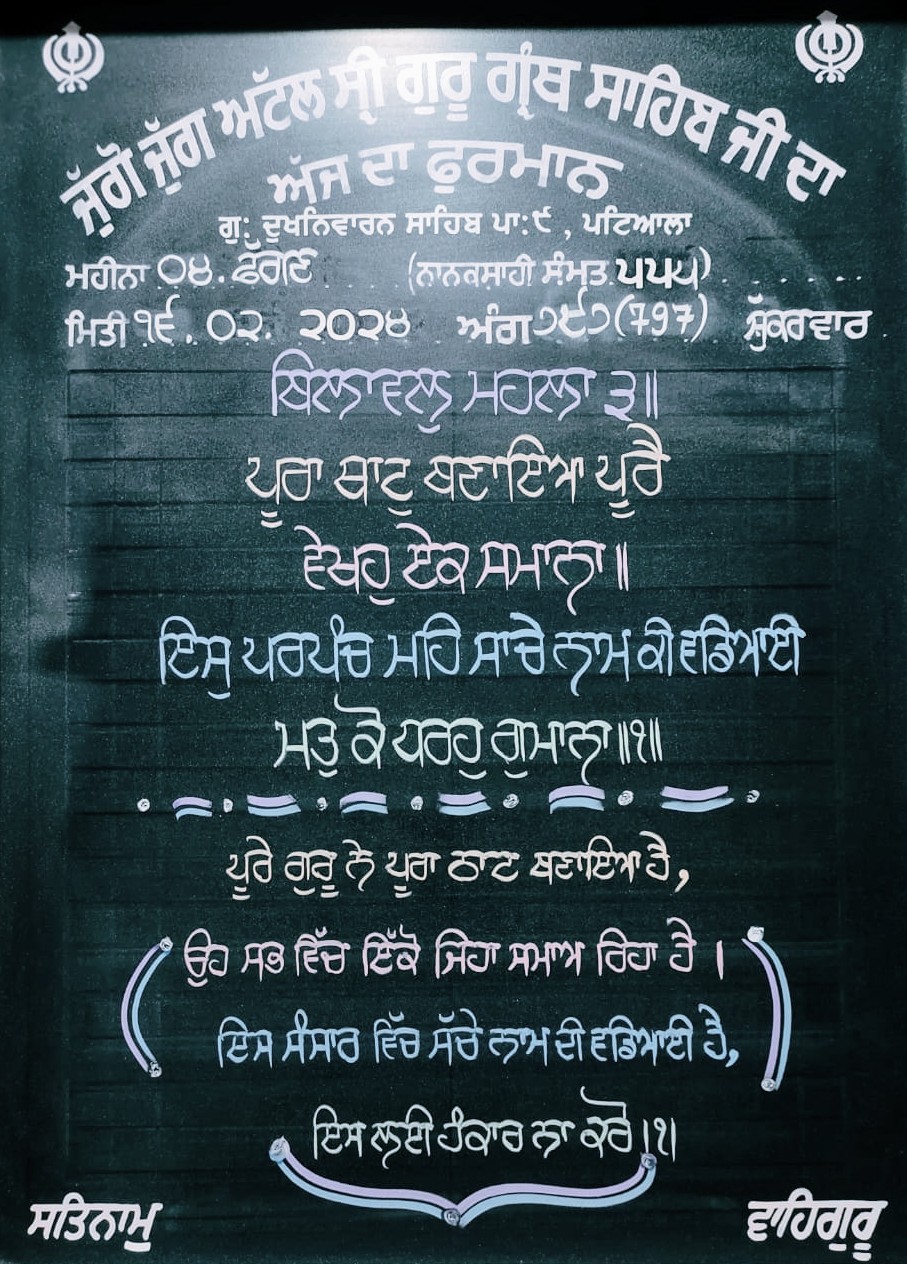 ਜੁੱਗੋ ਜੁੱਗ ਅਟੱਲ ਸ੍ਰੀ ਗੁਰੂ ਗ੍ਰੰਥ ਸਾਹਿਬ ਜੀ ਦਾ
ਅੱਜ ਦਾ ਫੁਰਮਾਨ
ਗੁ: ਦੁਖਨਿਵਾਰਨ ਸਾਹਿਬ ਪਾ:੯ , ਪਟਿਆਲਾ
ਮਹੀਨਾ ੦੪. ਫੱਗਣ (ਨਾਨਕਸਾਹੀ ਸੰਮਤ ੫੫੫)
ਮਿਤੀ ੧੬. ੦੨. ੨੦੨੪ ਅੰਗ ੭੯੭(797) ਸ਼ੁੱਕਰਵਾਰ
ਬਿਲਾਵਲੁ ਮਹਲਾ ੩॥
ਪੂਰਾ ਥਾਟੁ ਬਣਾਇਆ ਪੂਰੈ
ਵੇਖਹੁ ਏਕ ਸਮਾਨਾ॥
ਇਸੁ ਪਰਪੰਚ ਮਹਿ ਸਾਚੇ ਨਾਮ ਕੀ ਵਡਿਆਈ
ਮਤੁ ਕੋ ਧਰਹੁ ਗੁਮਾਨਾ॥੧॥
ਪੂਰੇ ਗੁਰੂ ਨੇ ਪੂਰਾ ਠਾਟ ਬਣਾਇਆ ਹੈ,
ਉਹ ਸਭ ਵਿੱਚ ਇੱਕੋ ਜਿਹਾ ਸਮਾਅ ਰਿਹਾ ਹੈ ।
ਇਸ ਸੰਸਾਰ ਵਿੱਚ ਸੱਚੇ ਨਾਮ ਦੀ ਵਡਿਆਈ ਹੈ,
ਇਸ ਲਈ ਹੰਕਾਰ ਨਾ ਕਰੋ।੧।
ਸਤਿਨਾਮੁ ਵਾਹਿਗੁਰੂ